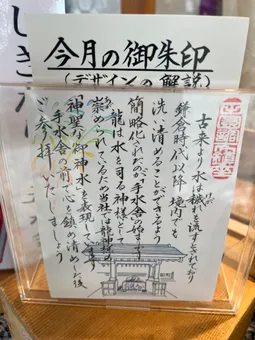 今月の御朱印
(デザインの解説)
古来より水は穢れを流すとされており
鎌倉時代以降 境内でも
洗い清めることができるよう
簡略化されたのが「手水舎」の始まり
龍は水を司る神様として
崇められているため当社では龍神の
「神聖な御神水」を表現しています
手水舎の前で心を鎮め清めし後
ご参拝いたしましょう